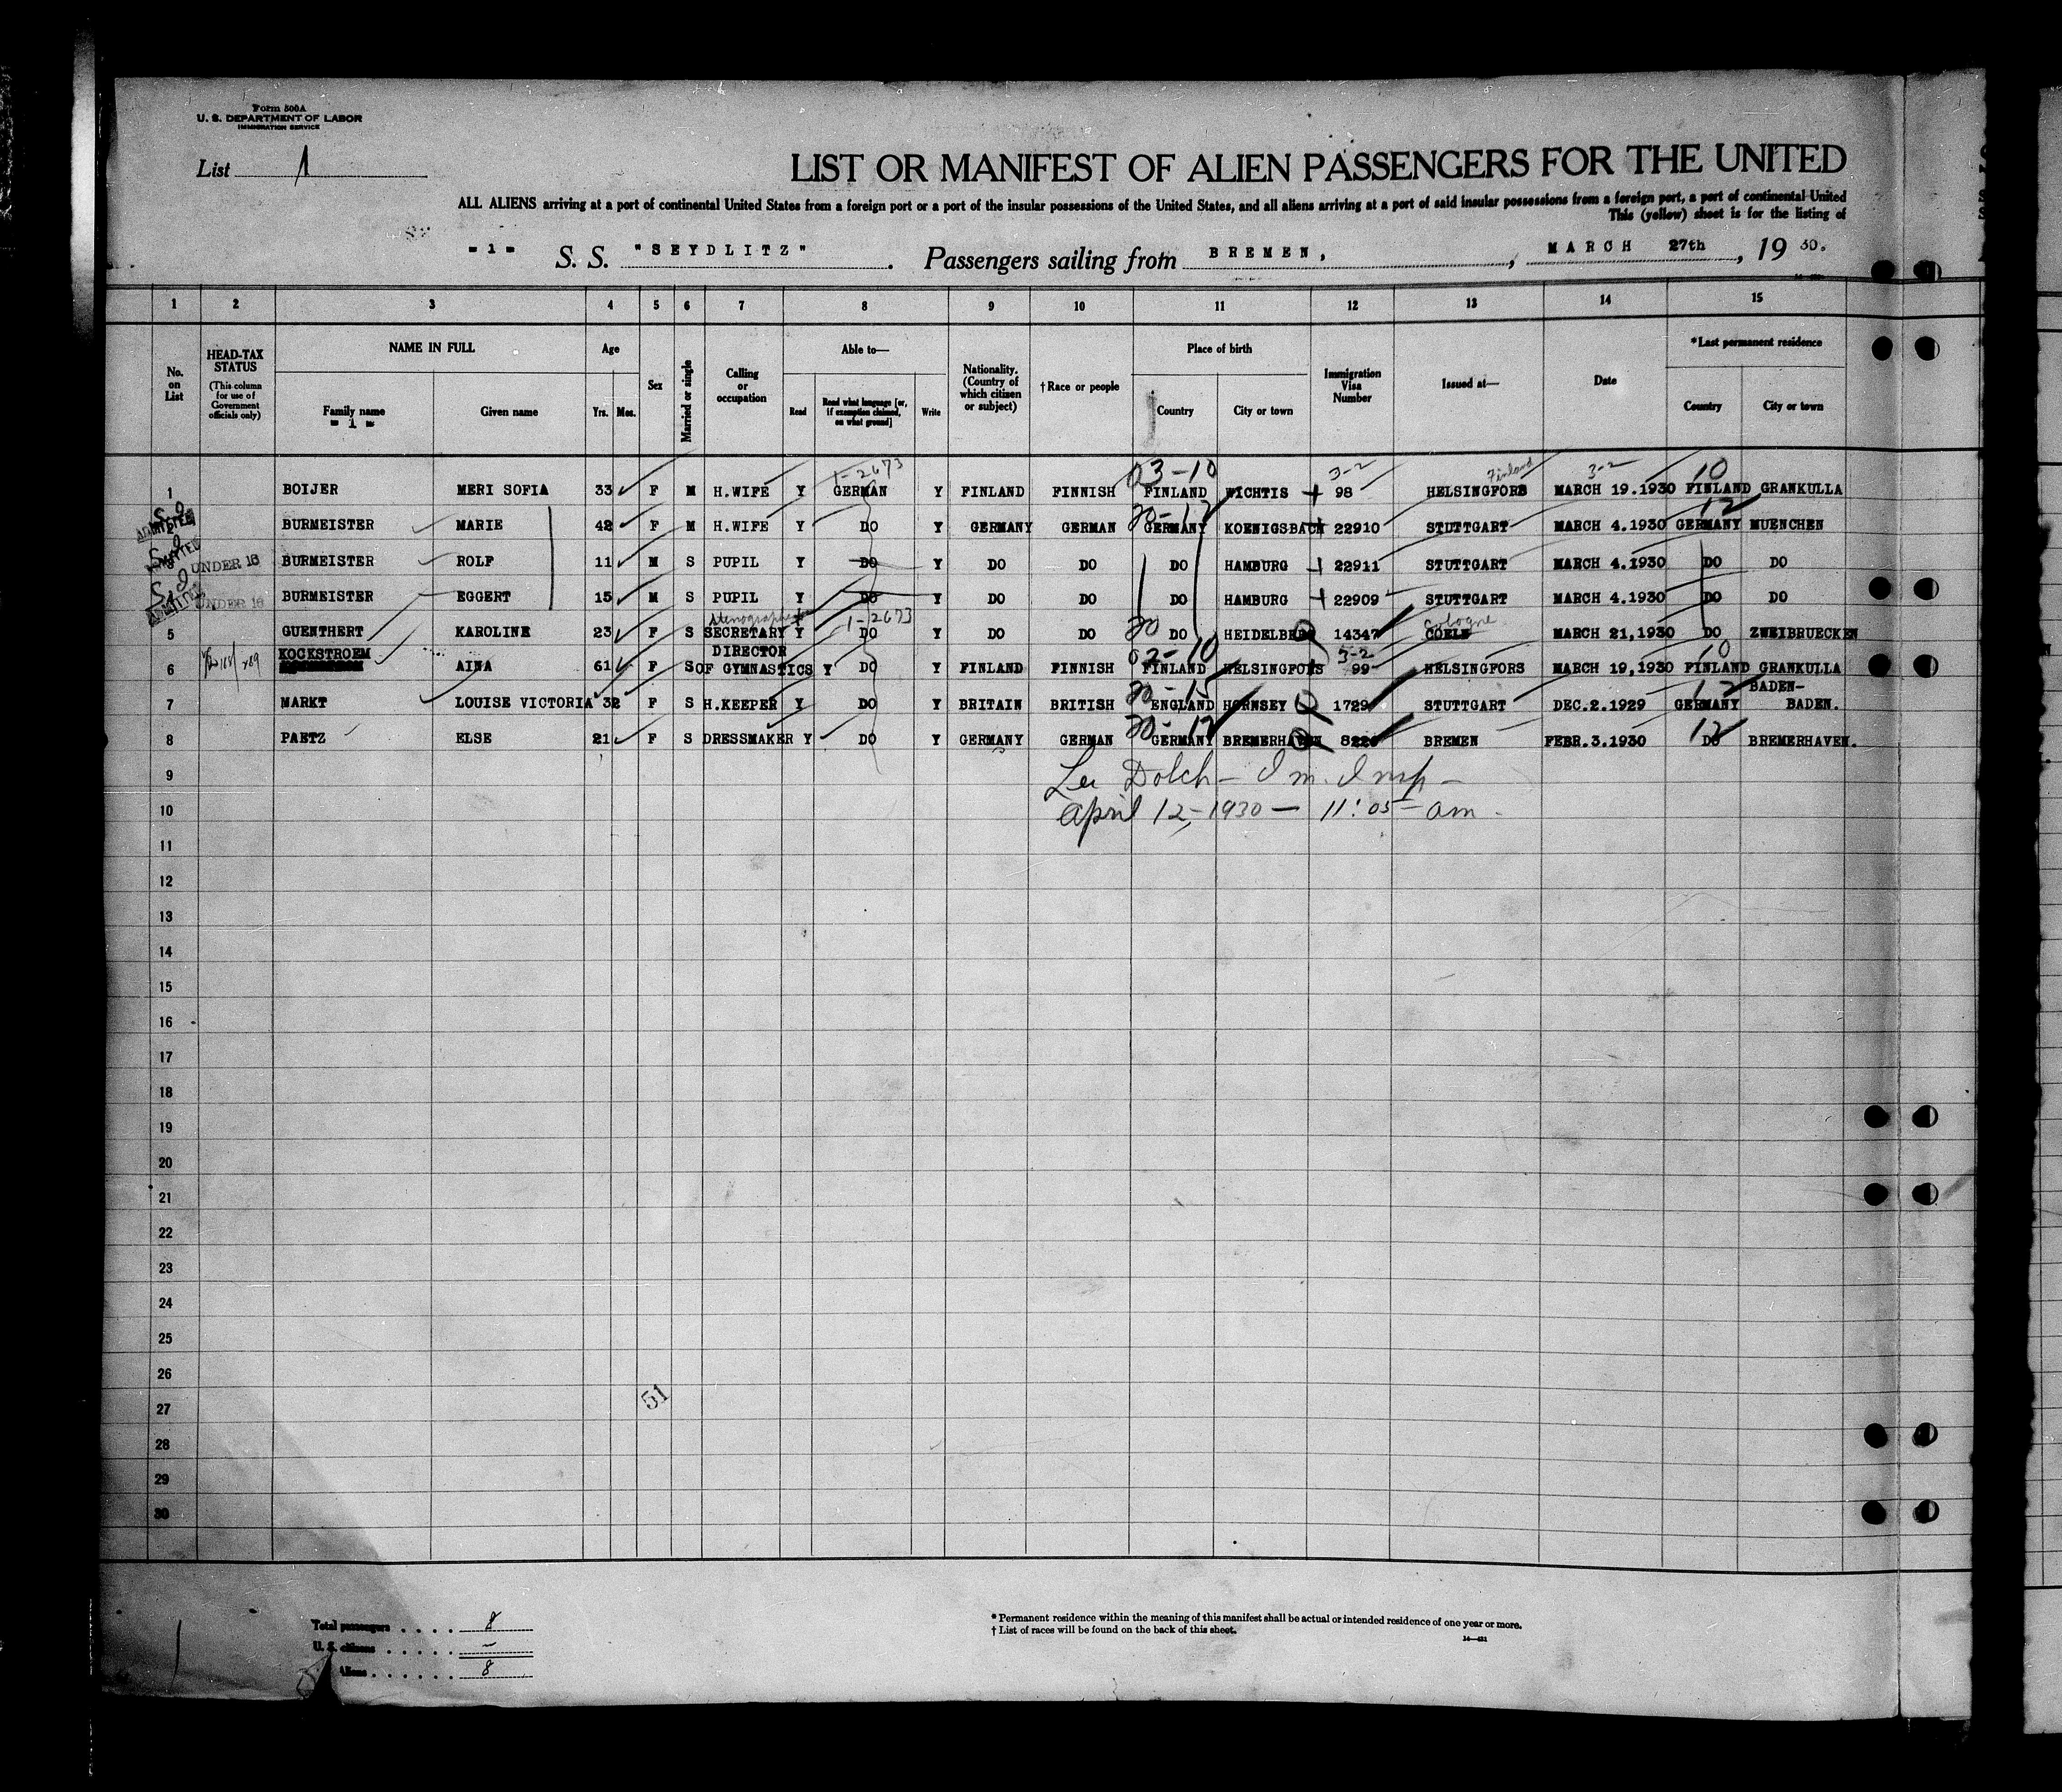 Form 500A
U. S. DEPARTMENT OF LABOR
IMMIGRATION SERVICE
List 1
LIST OR MANIFEST OF ALIEN PASSENGERS FOR THE UNITED
ALL ALIENS arriving at a port of continental United States from a foreign port or a port of the insular possessions of the United States, and all aliens arriving at a port of said insular possessions from a foreign port, a part of continental United
This (yellow) sheet is for the listing of
- 1 - S. S. "SEYDLITZ". Passengers sailing from BREMEN, , MARCH 27th, 19 30.
1 2 3 4 5 6 7 8 9 10 11 12 13 14 15
No. on List
HEAD-TAX STATUS (This column for use of Government officials only)
NAME IN FULL
Family name
" 1 "
Given name
Age
Yrs. Mos.
Sex
Married or single
Calling or occupation
Able to—
Read
Read what language [or, if exemption claimed, on what ground]
Write
Nationality. (Country of which citizen or subject)
† Race or people
Place of birth
Country
City or town
Immigration Visa Number
Issued at—
Date
*Last permanent residence
Country
City or town
1-2673 03-10 3-2 Finland 3-2 10
1 BOIJER MERI SOFIA 33 F M H.WIFE Y GERMAN Y FINLAND FINNISH FINLAND WICHTIS 98 HELSINGFORS MARCH 19.1930 FINLAND GRANKULLA
12
ADMITTED BURMEISTER MARIE 42 F M H.WIFE Y DO Y GERMANY GERMAN GERMANY KOENIGSBACH 22910 STUTTGART MARCH 4.1930 GERMANY MUENCHEN
ADMITTED UNDER 16 BURMEISTER ROLF 11 M S PUPIL Y DO Y DO DO DO HAMBURG 22911 STUTTGART MARCH 4.1930 DO DO
ADMITTED UNDER 16 BURMEISTER EGGERT 15 M S PUPIL Y DO Y DO DO DO HAMBURG 22909 STUTTGART MARCH 4.1930 DO DO
stenographer 1-2673 Cologne
5 GUENTHERT KAROLINE 23 F S SECRETARY Y DO Y DO DO DO HEIDELBERG 14347 COELN MARCH 21,1930 DO ZWEIBRUECKEN
KOCKSTROEM DIRECTOR 02-10 3-2 10
6 AINA 61 F S OF GYMNASTICS Y DO Y FINLAND FINNISH FINLAND HELSINGFORS 99 HELSINGFORS MARCH 19,1930 FINLAND GRANKULLA
12 BADEN-
7 MARKT LOUISE VICTORIA 32 F S H.KEEPER Y DO Y BRITAIN BRITISH ENGLAND HORNSEY 1729 STUTTGART DEC.2.1929 GERMANY BADEN.
12
8 PAETZ ELSE 21 F S DRESSMAKER Y DO Y GERMANY GERMAN GERMANY BREMERHAVEN BREMEN FEBR.3.1930 DO BREMERHAVEN.
9 Dolch - Im. Insp -
10 April 12, 1930 — 11:05 am.
11
12
13
14
15
16
17
18
19
20
21
22
23
24
25
26
27 51
28
29
30
Total passengers . . . . 8
U. S. citizens . . . . . –
Aliens . . . . . . 8
* Permanent residence within the meaning of this manifest shall be actual or intended residence of one year or more.
† List of races will be found on the back of this sheet.